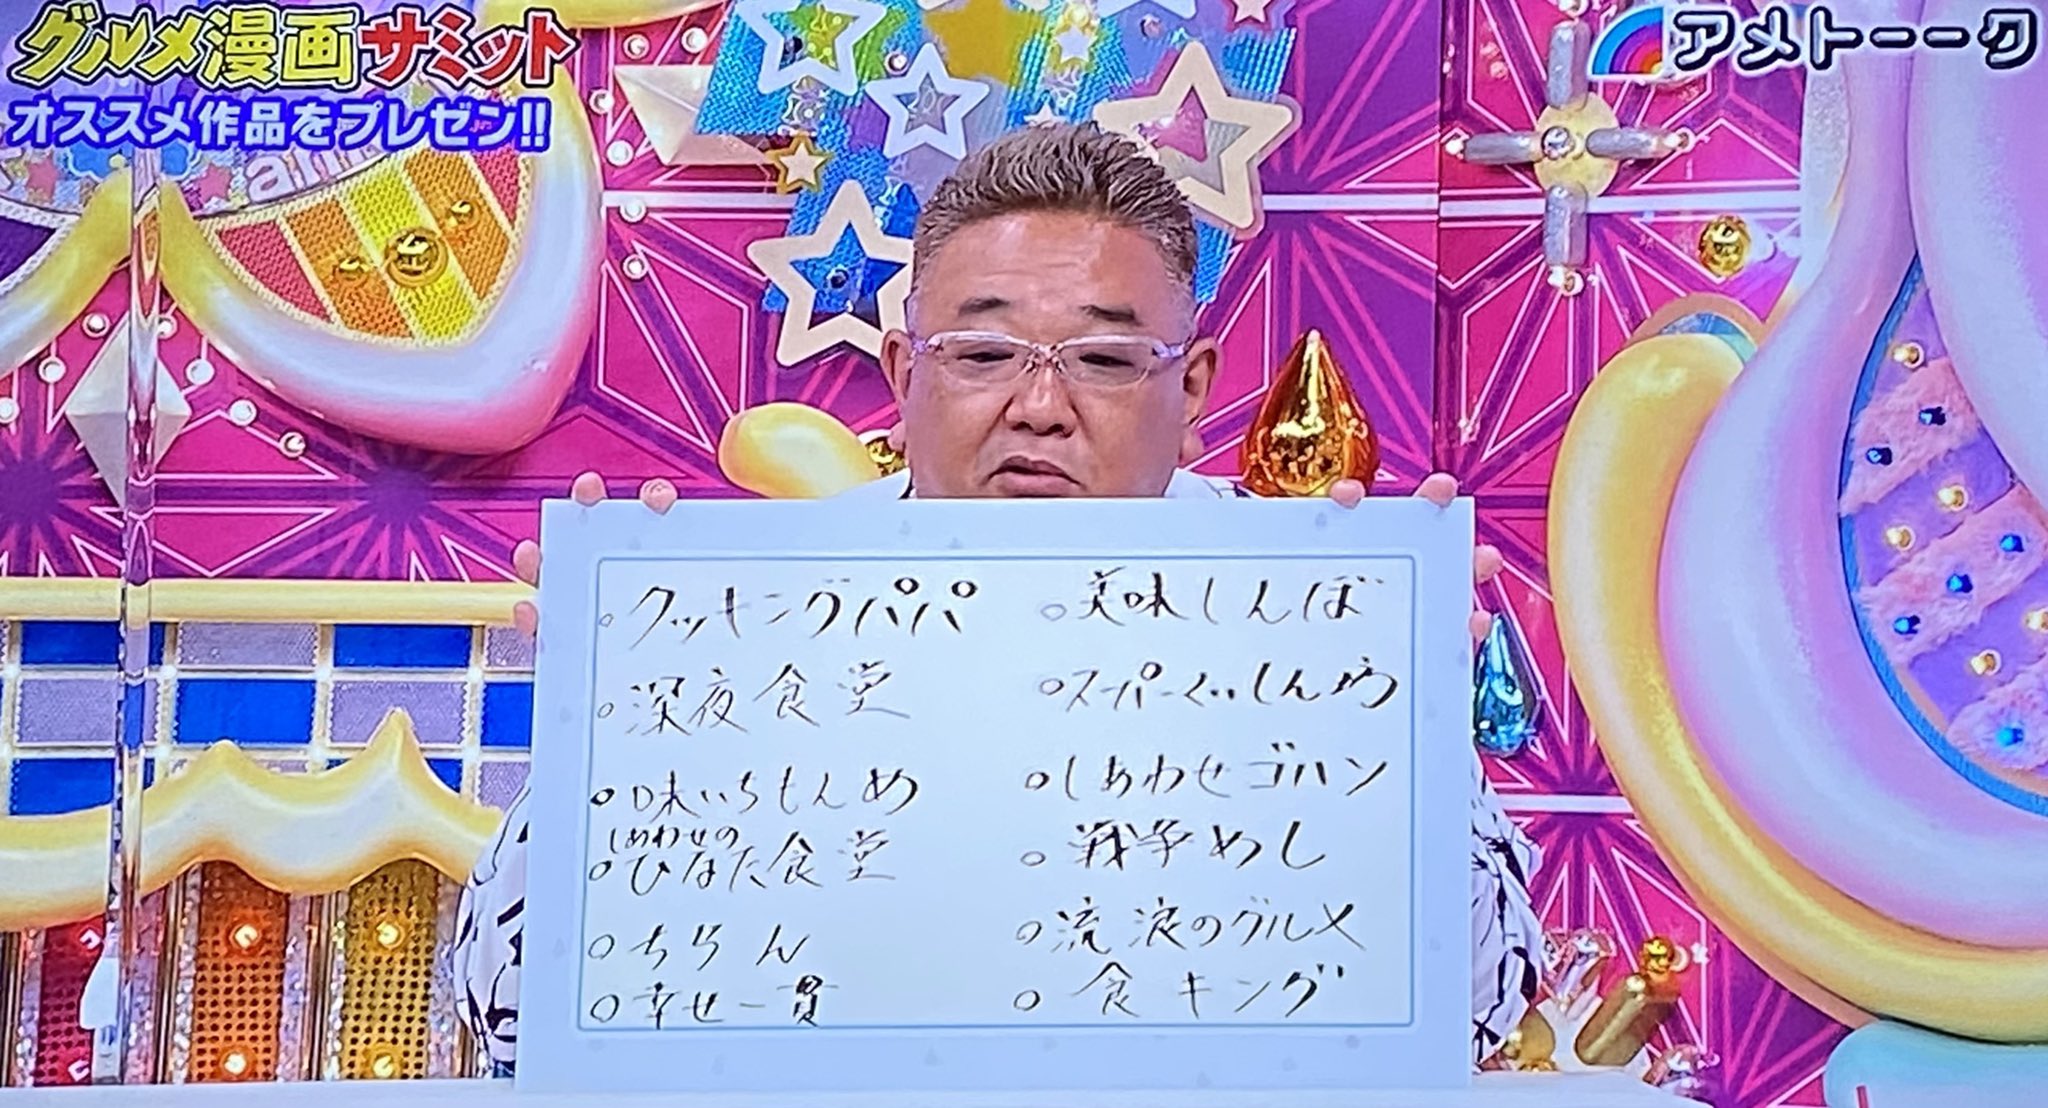 グルメ漫画サミット
オススメ作品をプレゼン!!
アメトーーク
クッキングパパ
深夜食堂
味いちもんめ
しあわせの
ひなた食堂
ちらん
幸せ一貫
美味しんぼ
スーパーくいしん坊
しあわせゴハン
戦争めし
流浪のグルメ
食キング